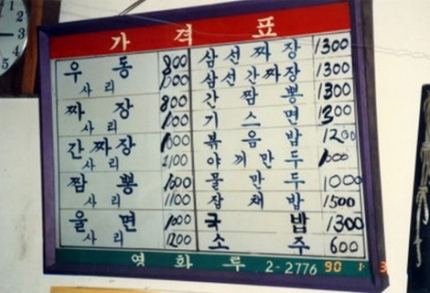 가 격 표
우 동 800 삼 선 짜 장 1300
사 리 삼 선 간 짜 장 1300
짜 장 800 간 짬 뽕 1300
사 리 기 스 면
간 짜 장 볶 음 밥 1200
사 리 야 끼 만 두
짬 뽕 물 만 두 1000
사 리 1100 잡 채 밥 1500
울 면 1000 국 밥 1300
사 리 1200 소 주 600
영 화 루 2-2776 90 1 3